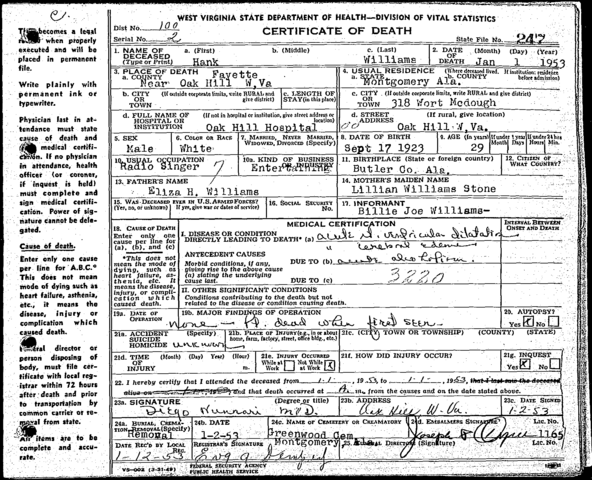 WEST VIRGINIA STATE DEPARTMENT OF HEALTH—DIVISION OF VITAL STATISTICS
CERTIFICATE OF DEATH
Dist No. 100
Serial No. 2
State File No. 242
1. NAME OF DECEASED (Type or Print)
a. (First) Hank
b. (Middle)
c. (Last) Williams
2. DATE OF DEATH (Month) (Day) (Year) Jan 1 1953
3. PLACE OF DEATH
a. COUNTY Fayette
Near Oak Hill W.Va
4. USUAL RESIDENCE (Where deceased lived. If institution: residence before admission)
a. STATE b. COUNTY
Montgomery Ala.
b. CITY OR TOWN (If outside corporate limits, write RURAL and give district)
c. LENGTH OF STAY (in this place)
c. CITY OR TOWN (If outside corporate limits, write RURAL and give district)
318 Wort Mcdough
d. FULL NAME OF HOSPITAL OR INSTITUTION (If not in hospital or institution, give street address or location)
Oak Hill Hospital
d. STREET ADDRESS (If rural, give location)
Oak Hill W.Va.
5. SEX Male
6. COLOR OR RACE White
7. MARRIED, NEVER MARRIED, WIDOWED, DIVORCED (Specify)
8. DATE OF BIRTH Sept 17 1923
9. AGE (In years) 29
10. USUAL OCCUPATION Radio Singer
10a. KIND OF BUSINESS OR INDUSTRY
11. BIRTHPLACE (State or foreign country)
Butler Co. Ala.
12. CITIZEN OF WHAT COUNTRY?
13. FATHER'S NAME
Eliza H. Williams
14. MOTHER'S MAIDEN NAME
Lillian Williams Stone
15. WAS DECEASED EVER IN U.S. ARMED FORCES?
(Yes, no, or unknown) (If yes, give war or dates of service)
16. SOCIAL SECURITY No.
17. INFORMANT
Billie Joe Williams-
MEDICAL CERTIFICATION
INTERVAL BETWEEN ONSET AND DEATH
18. CAUSE OF DEATH
Enter only one cause per line for (a), (b), and (c)
I. DISEASE OR CONDITION DIRECTLY LEADING TO DEATH* (a) acute rt. ventricular dilatation
*This does not mean the mode of dying, such as heart failure, asthenia, etc. It means the disease, injury, or complication which caused death.
ANTECEDENT CAUSES
Morbid conditions, if any, giving rise to the above cause (a) stating the underlying cause last.
DUE TO (b)
DUE TO (c)
3220
II. OTHER SIGNIFICANT CONDITIONS
Conditions contributing to the death but not related to the disease or condition causing death.
19a. DATE OF OPERATION
19b. MAJOR FINDINGS OF OPERATION
none — Pt. dead when first seen
20. AUTOPSY?
Yes No
21a. ACCIDENT SUICIDE HOMICIDE (Specify) unknown
21b. PLACE OF INJURY (e.g., in or about home, farm, factory, street, office bldg., etc.)
21c. (CITY, TOWN OR TOWNSHIP) (COUNTY) (STATE)
21d. TIME OF INJURY (Month) (Day) (Year) (Hour) m.
21e. INJURY OCCURRED
While at Work Not While at Work
21f. HOW DID INJURY OCCUR?
21g. INQUEST
Yes No
22. I hereby certify that I attended the deceased from 1-1, 1953 to 1-1-, 1953, that I last saw the deceased
and that death occurred at m., from the causes and on the date stated above.
23a. SIGNATURE (Degree or title)
Diego Nunnari M.D.
23b. ADDRESS
Oak Hill W-Va.
23c. DATE SIGNED
1-2-53
24a. BURIAL, CREMATION, REMOVAL (Specify)
Removal
24b. DATE
1-2-53
24c. NAME OF CEMETERY OR CREMATORY
Greenwood Cem.
Montgomery
24d. EMBALMER'S SIGNATURE
Lic. No. 1165
DATE REC'D BY LOCAL REG. 1-12-53
REGISTRAR'S SIGNATURE
(Signature)
Lic. No.
FEDERAL SECURITY AGENCY
PUBLIC HEALTH SERVICE
becomes a legal
when properly
executed and will be
placed in permanent
file.
Write plainly with
permanent ink or
typewriter.
Physician last in at-
tendance must state
cause of death and
medical certifi-
cation. If no physician
in attendance, health
officer (or coroner,
if inquest is held)
must complete and
sign medical certifi-
cation. Power of sig-
nature cannot be dele-
gated.
Cause of death.
Enter only one cause
per line for A.B.C.*
This does not mean
mode of dying such as
heart failure, asthenia,
etc., it means the
disease, injury or
complication which
caused death.
director or
person disposing of
body, must file cer-
tificate with local reg-
istrar within 72 hours
after death and prior
to transportation by
common carrier or re-
moval from state.
All items are to be
complete and accu-
rate.